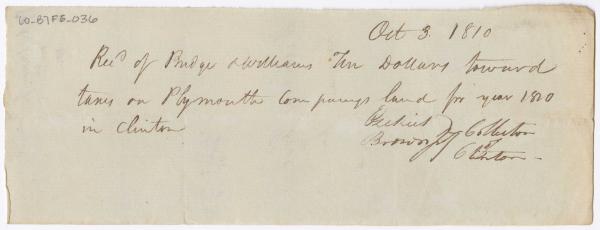 60-B7F5-036
Oct 3. 1810
Recd of Bridge & Williams Ten Dollars toward
taxes on Plymouth Companys land for year 1810
in Clinton
Ezekiel
Brown Jr Collector
of Clinton